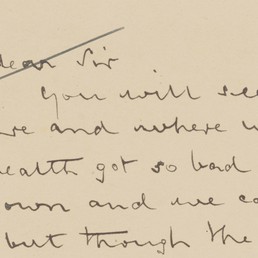 dear Sir
You will see
re and where w
ealth got so bad
own and we co
but though the